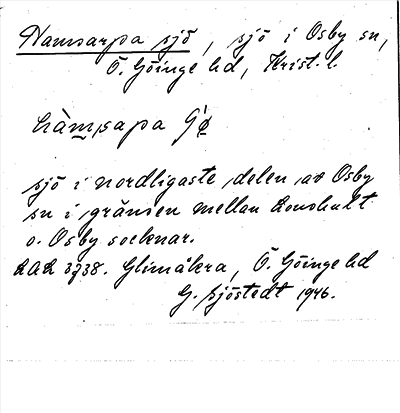 Hamsarpa sjö, sjö i Osby sn,
Ö. Göinge hd, Krist. l.
hàmsapa
sjö i nordligaste delen av Osby
sn i gränsen mellan Loushult
o. Osby socknar.
Glimåkra, Ö. Göinge hd
G. Sjöstedt 1946.